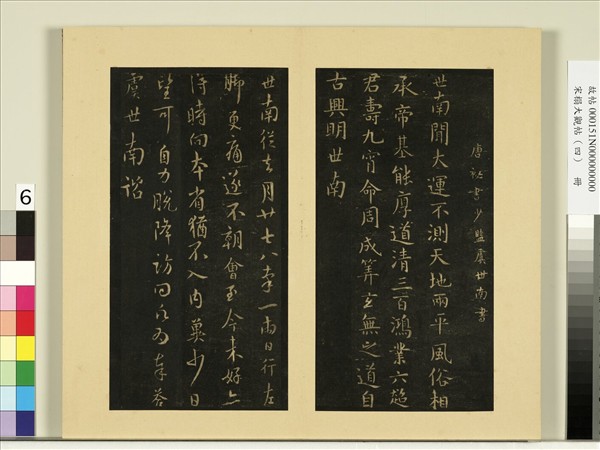 故帖 000151N000000000
宋搨大觀帖(四) 冊
唐秘書少監虞世南書
世南聞大運不測天地兩平風俗相
承帝基能厚道清三百鴻業六超
君壽九霄命周成筭玄無之道自
古興明世南
世南從去月廿七八率一兩日行左
腳更痛遂不朝會至今未好亦
得時向本省猶不入內冀少日
望可自力脫降訪問願為奉答
虞世南諮
6